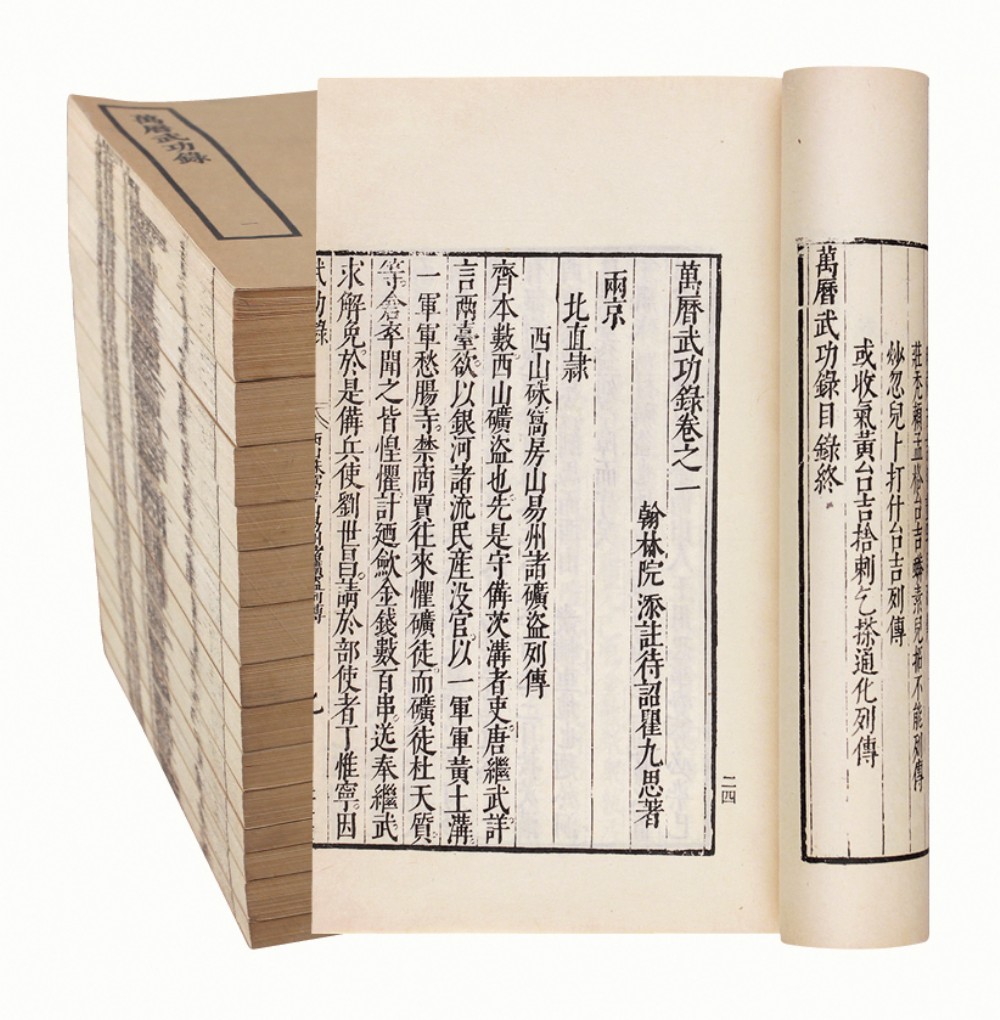 萬曆武功錄
一
莊禿賴孟格台吉
炒忽兒卜打什台吉列傳
或收氣黃台吉捨剌乞探通化列傳
萬曆武功錄目錄終
二四
萬曆武功錄卷之一
翰林院添註待詔瞿九思著
兩京
北直隸
西山硃窩房山易州諸礦盜列傳
齊本數。西山礦盜也。先是守備茨溝者吏。唐繼武。詳
言兩臺。欲以銀河諸流民產没官。以一軍軍黃土溝。
一軍軍愁腸寺。禁商賈往來。懼礦徒。而礦徒杜天質。
等倉卒聞之。皆惶懼。計廼斂金錢數百串。送奉繼武
求解免。於是備兵使劉世昌。請於部使者丁惟寧。因
武功錄